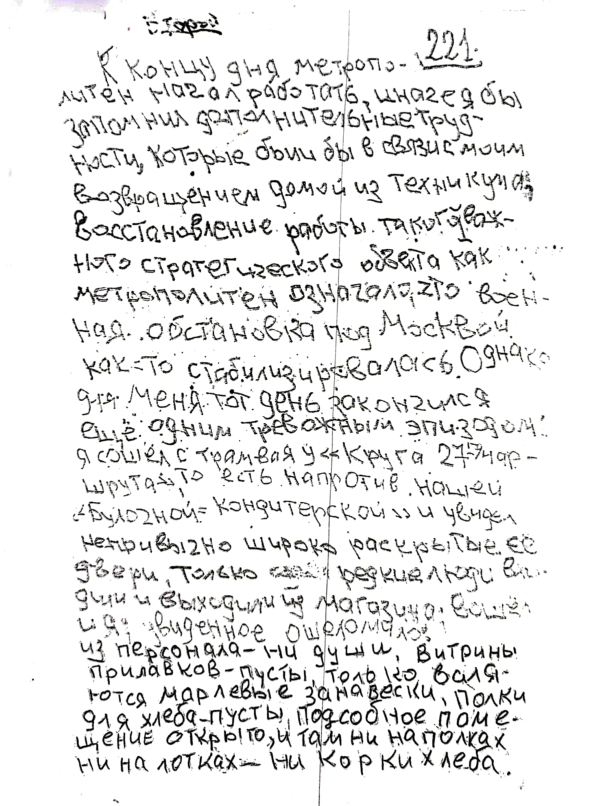 221.
К концу дня метропо-
литен начал работать, иначе я бы
запомнил дополнительные труд-
ности, которые были бы в связи с моим
возвращением домой из техникума;
восстановление работы такого важ-
ного стратегического объекта как
метрополитен означало, что воен-
ная обстановка под Москвой
как-то стабилизировалась. Однако
для меня тот день закончился
ещё одним тревожным эпизодом:
я сошёл с трамвая у «Круга 27го мар-
шрута», то есть напротив нашей
«Булочной-кондитерской» и увидел
непривычно широко раскрытые её
двери, только редкие люди
и выходили из магазина.
и я: увиденное ошеломало:
из персонала - ни души, витрины
прилавков - пусты, только валя-
ются марлевые занавески, полки
для хлеба - пусты, подсобное поме-
щение открыто, и там ни на полках
ни на лотках - ни корки хлеба.